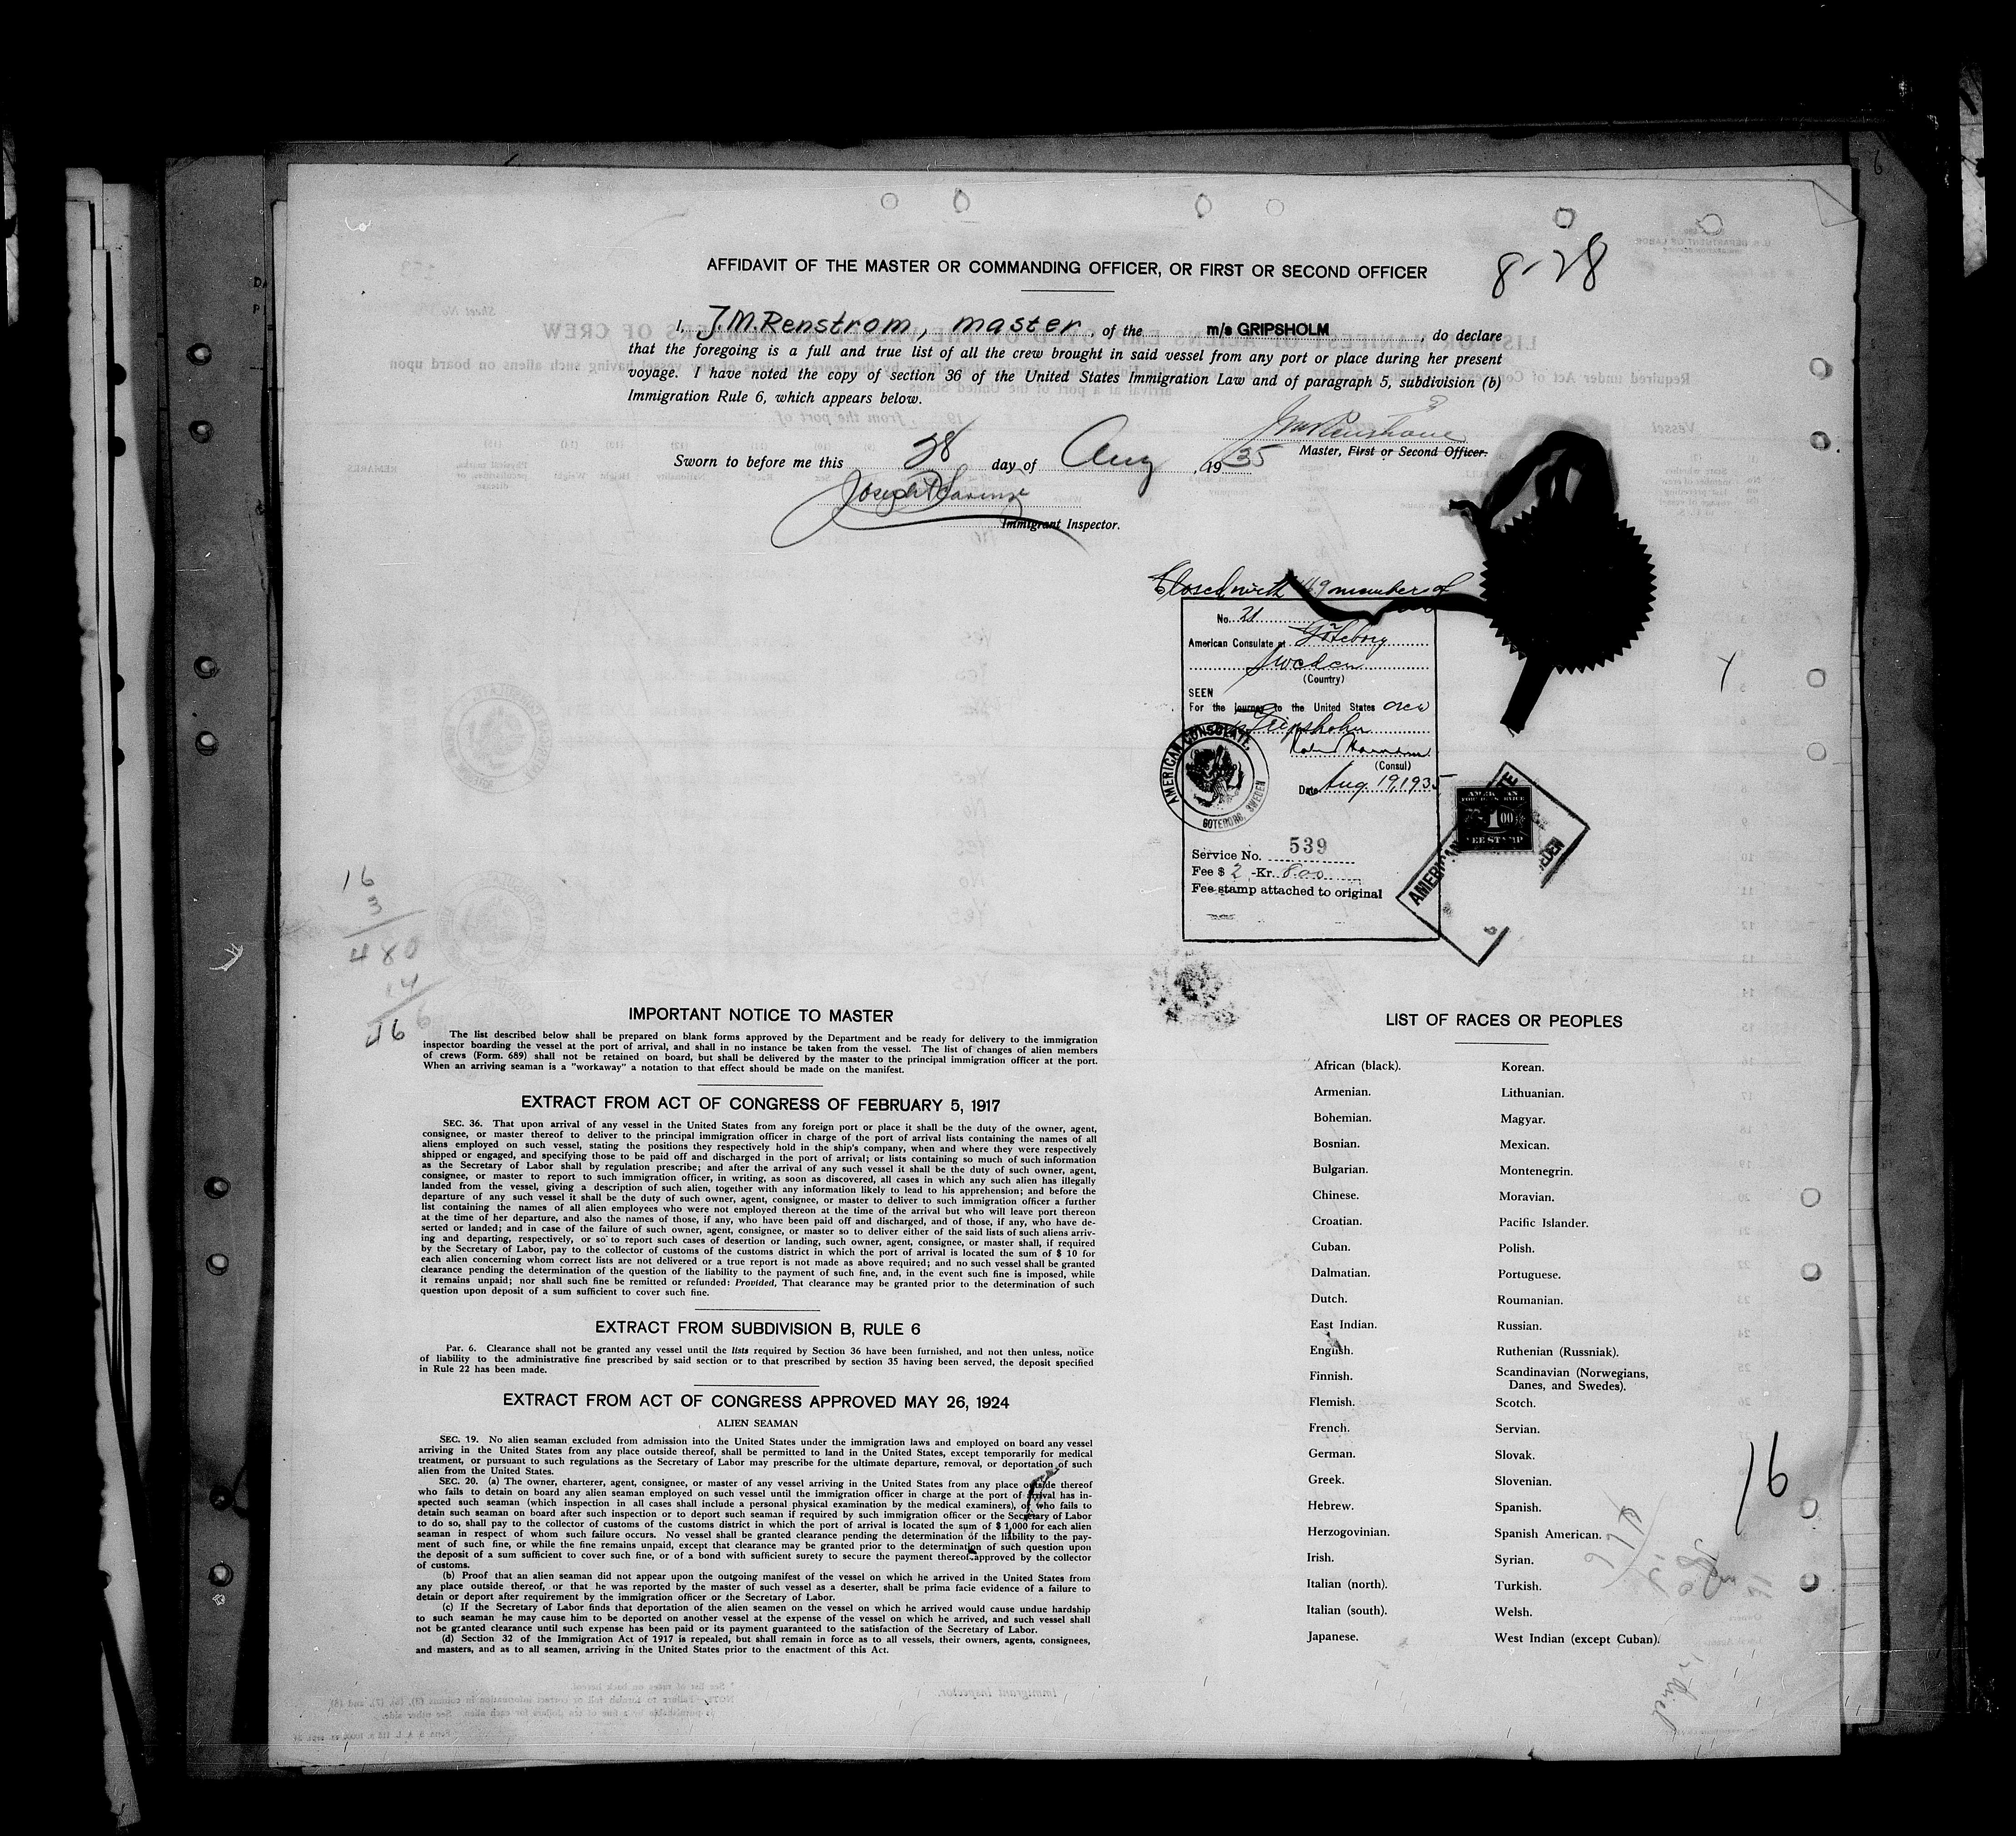 8-28
AFFIDAVIT OF THE MASTER OR COMMANDING OFFICER, OR FIRST OR SECOND OFFICER
I, J.M.Renstrom, master, of the m/s GRIPSHOLM, do declare
that the foregoing is a full and true list of all the crew brought in said vessel from any port or place during her present
voyage. I have noted the copy of section 36 of the United States Immigration Law and of paragraph 5, subdivision (b)
Immigration Rule 6, which appears below.
Master, First or Second Officer.
Sworn to before me this 28 day of Aug, 1935
Joseph
Immigrant Inspector.
Closed with members of
No. 21
American Consulate at Göteborg
Sweden
(Country)
SEEN
For the journey to the United States crew
Gripsholm
(Consul)
Date Aug. 19, 1935
AMERICAN CONSULATE
GOTEBORG, SWEDEN
AMERICAN
FOREIGN SERVICE
1 00
FEE STAMP
Service No. 539
Fee $ 2 -Kr. 8.00
Fee stamp attached to original
16
3
480
14
IMPORTANT NOTICE TO MASTER
The list described below shall be prepared on blank forms approved by the Department and be ready for delivery to the immigration
inspector boarding the vessel at the port of arrival, and shall in no instance be taken from the vessel. The list of changes of alien members
of crews (Form. 689) shall not be retained on board, but shall be delivered by the master to the principal immigration officer at the port.
When an arriving seaman is a "workaway" a notation to that effect should be made on the manifest.
EXTRACT FROM ACT OF CONGRESS OF FEBRUARY 5, 1917
SEC. 36. That upon arrival of any vessel in the United States from any foreign port or place it shall be the duty of the owner, agent,
consignee, or master thereof to deliver to the principal immigration officer in charge of the port of arrival lists containing the names of all
aliens employed on such vessel, stating the positions they respectively hold in the ship's company, when and where they were respectively
shipped or engaged, and specifying those to be paid off and discharged in the port of arrival; or lists containing so much of such information
as the Secretary of Labor shall by regulation prescribe; and after the arrival of any such vessel it shall be the duty of such owner, agent,
consignee, or master to report to such immigration officer, in writing, as soon as discovered, all cases in which any such alien has illegally
landed from the vessel, giving a description of such alien, together with any information likely to lead to his apprehension; and before the
departure of any such vessel it shall be the duty of such owner, agent, consignee, or master to deliver to such immigration officer a further
list containing the names of all alien employees who were not employed thereon at the time of the arrival but who will leave port thereon
at the time of her departure, and also the names of those, if any, who have been paid off and discharged, and of those, if any, who have de-
serted or landed; and in case of the failure of such owner, agent, consignee, or master so to deliver either of the said lists of such aliens arriv-
ing and departing, respectively, or so to report such cases of desertion or landing, such owner, agent, consignee, or master shall, if required
by the Secretary of Labor, pay to the collector of customs of the customs district in which the port of arrival is located the sum of $ 10 for
each alien concerning whom correct lists are not delivered or a true report is not made as above required; and no such vessel shall be granted
clearance pending the determination of the question of the liability to the payment of such fine, and, in the event such fine is imposed, while
it remains unpaid; nor shall such fine be remitted or refunded: Provided, That clearance may be granted prior to the determination of such
question upon deposit of a sum sufficient to cover such fine.
EXTRACT FROM SUBDIVISION B, RULE 6
Par. 6. Clearance shall not be granted any vessel until the lists required by Section 36 have been furnished, and not then unless, notice
of liability to the administrative fine prescribed by said section or to that prescribed by section 35 having been served, the deposit specified
in Rule 22 has been made.
EXTRACT FROM ACT OF CONGRESS APPROVED MAY 26, 1924
ALIEN SEAMAN
SEC. 19. No alien seaman excluded from admission into the United States under the immigration laws and employed on board any vessel
arriving in the United States from any place outside thereof, shall be permitted to land in the United States, except temporarily for medical
treatment, or pursuant to such regulations as the Secretary of Labor may prescribe for the ultimate departure, removal, or deportation of such
alien from the United States.
SEC. 20. (a) The owner, charterer, agent, consignee, or master of any vessel arriving in the United States from any place outside thereof
who fails to detain on board any alien seaman employed on such vessel until the immigration officer in charge at the port of arrival has in-
spected such seaman (which inspection in all cases shall include a personal physical examination by the medical examiners), or who fails to
detain such seaman on board after such inspection or to deport such seaman if required by such immigration officer or the Secretary of Labor
to do so, shall pay to the collector of customs of the customs district in which the port of arrival is located the sum of $ 1,000 for each alien
seaman in respect of whom such failure occurs. No vessel shall be granted clearance pending the determination of the liability to the pay-
ment of such fine, or while the fine remains unpaid, except that clearance may be granted prior to the determination of such question upon
the deposit of a sum sufficient to cover such fine, or of a bond with sufficient surety to secure the payment thereof approved by the collector
of customs.
(b) Proof that an alien seaman did not appear upon the outgoing manifest of the vessel on which he arrived in the United States from
any place outside thereof, or that he was reported by the master of such vessel as a deserter, shall be prima facie evidence of a failure to
detain or deport after requirement by the immigration officer or the Secretary of Labor.
(c) If the Secretary of Labor finds that deportation of the alien seamen on the vessel on which he arrived would cause undue hardship
to such seaman he may cause him to be deported on another vessel at the expense of the vessel on which he arrived, and such vessel shall
not be granted clearance until such expense has been paid or its payment guaranteed to the satisfaction of the Secretary of Labor.
(d) Section 32 of the Immigration Act of 1917 is repealed, but shall remain in force as to all vessels, their owners, agents, consignees,
and masters, and as to all seamen, arriving in the United States prior to the enactment of this Act.
LIST OF RACES OR PEOPLES
African (black).
Armenian.
Bohemian.
Bosnian.
Bulgarian.
Chinese.
Croatian.
Cuban.
Dalmatian.
Dutch.
East Indian.
English.
Finnish.
Flemish.
French.
German.
Greek.
Hebrew.
Herzogovinian.
Irish.
Italian (north).
Italian (south).
Japanese.
Korean.
Lithuanian.
Magyar.
Mexican.
Montenegrin.
Moravian.
Pacific Islander.
Polish.
Portuguese.
Roumanian.
Russian.
Ruthenian (Russniak).
Scandinavian (Norwegians,
Danes, and Swedes).
Scotch.
Servian.
Slovak.
Slovenian.
Spanish.
Spanish American.
Syrian.
Turkish.
Welsh.
West Indian (except Cuban).
16